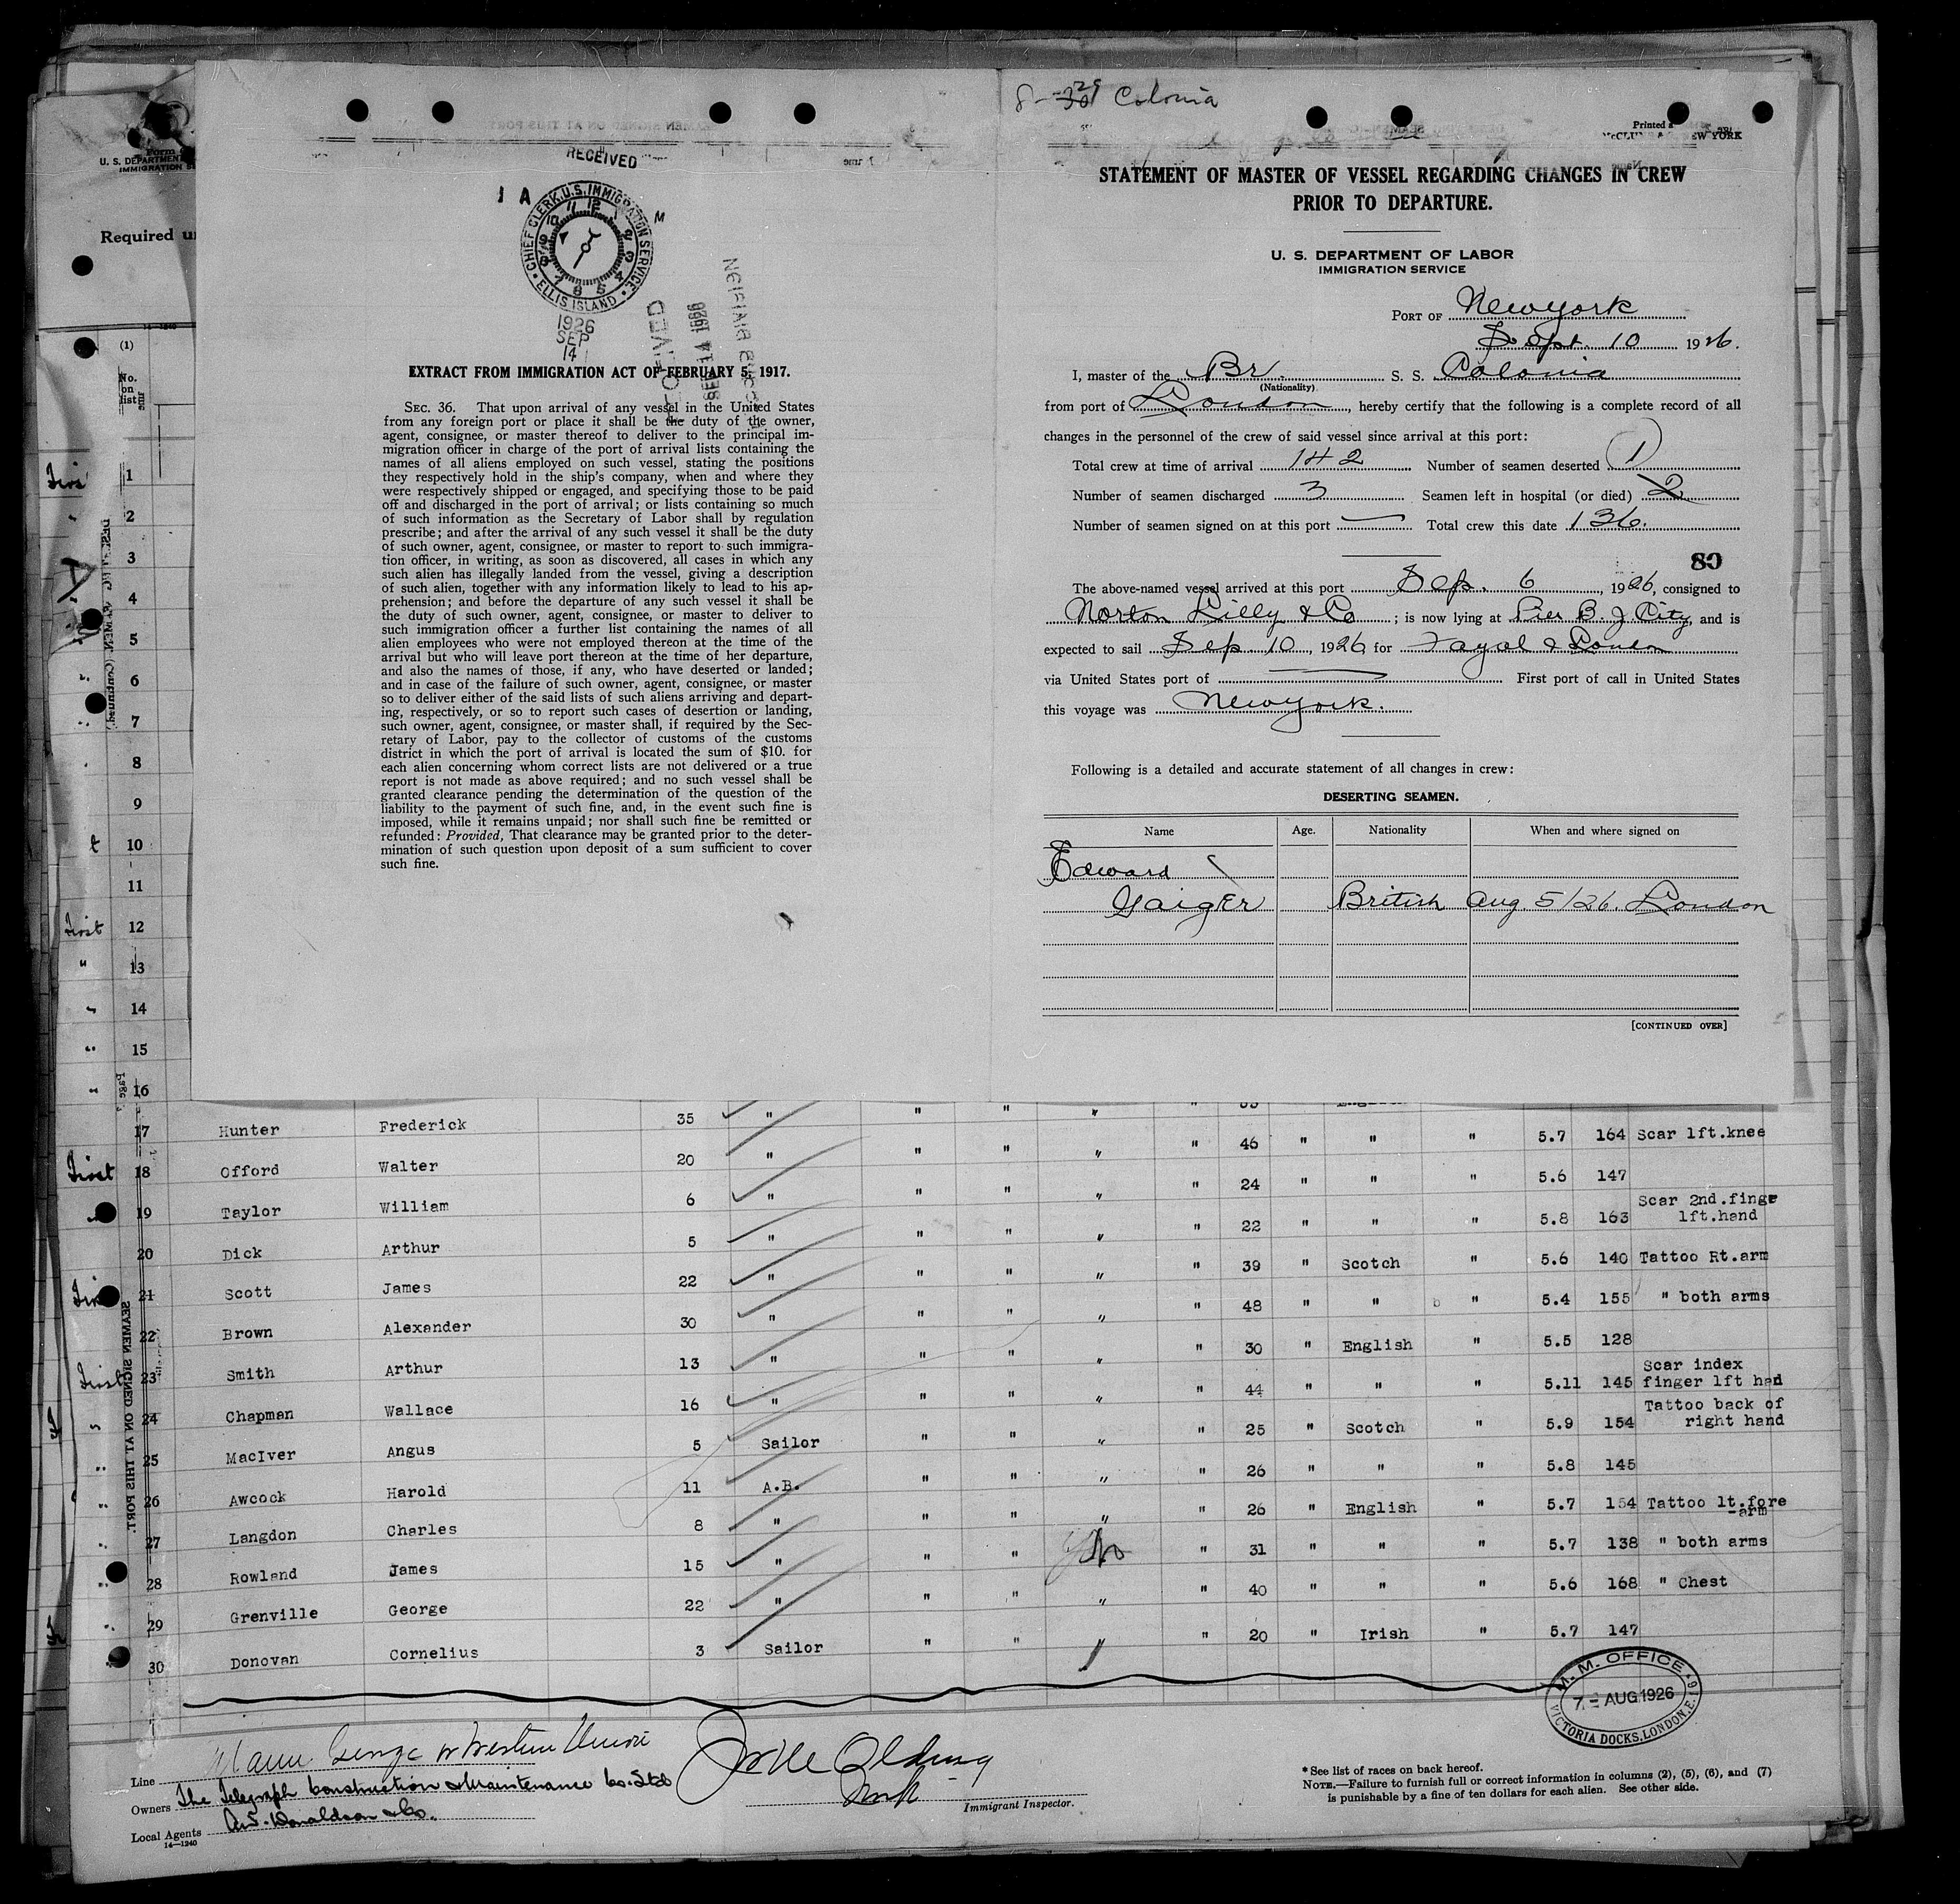 Form
U. S. DEPARTMENT
IMMIGRATION
Required
(1)
No.
on
list
RECEIVED
1 A M
CHIEF CLERK, U.S. IMMIGRATION SERVICE
ELLIS ISLAND
1926
SEP
14
EXTRACT FROM IMMIGRATION ACT OF FEBRUARY 5, 1917.
SEC. 36. That upon arrival of any vessel in the United States
from any foreign port or place it shall be the duty of the owner,
agent, consignee, or master thereof to deliver to the principal im-
migration officer in charge of the port of arrival lists containing the
names of all aliens employed on such vessel, stating the positions
they respectively hold in the ship's company, when and where they
were respectively shipped or engaged, and specifying those to be paid
off and discharged in the port of arrival; or lists containing so much
of such information as the Secretary of Labor shall by regulation
prescribe; and after the arrival of any such vessel it shall be the duty
of such owner, agent, consignee, or master to report to such immigra-
tion officer, in writing, as soon as discovered, all cases in which any
such alien has illegally landed from the vessel, giving a description
of such alien, together with any information likely to lead to his ap-
prehension; and before the departure of any such vessel it shall be
the duty of such owner, agent, consignee, or master to deliver to
such immigration officer a further list containing the names of all
alien employees who were not employed thereon at the time of the
arrival but who will leave port thereon at the time of her departure,
and also the names of those, if any, who have deserted or landed;
and in case of the failure of such owner, agent, consignee, or master
so to deliver either of the said lists of such aliens arriving and depart-
ing, respectively, or so to report such cases of desertion or landing,
such owner, agent, consignee, or master shall, if required by the Sec-
retary of Labor, pay to the collector of customs of the customs
district in which the port of arrival is located the sum of $10. for
each alien concerning whom correct lists are not delivered or a true
report is not made as above required; and no such vessel shall be
granted clearance pending the determination of the question of the
liability to the payment of such fine, and, in the event such fine is
imposed, while it remains unpaid; nor shall such fine be remitted or
refunded: Provided, That clearance may be granted prior to the deter-
mination of such question upon deposit of a sum sufficient to cover
such fine.
Colonia
STATEMENT OF MASTER OF VESSEL REGARDING CHANGES IN CREW
PRIOR TO DEPARTURE.
U. S. DEPARTMENT OF LABOR
IMMIGRATION SERVICE
PORT OF New York
Sept. 10 1926.
I, master of the Br. S. S. Colonia
(Nationality)
from port of London, hereby certify that the following is a complete record of all
changes in the personnel of the crew of said vessel since arrival at this port:
Total crew at time of arrival 142 Number of seamen deserted 1
Number of seamen discharged 3 Seamen left in hospital (or died) 2
Number of seamen signed on at this port — Total crew this date 136.
80
The above-named vessel arrived at this port Sep. 6, 1926, consigned to
Norton Lilly & Co; is now lying at Pier B. J. City, and is
expected to sail Sep 10, 1926 for Fayal & London
via United States port of — First port of call in United States
this voyage was New York.
Following is a detailed and accurate statement of all changes in crew:
DESERTING SEAMEN.
Name Age. Nationality When and where signed on
Edward
Gaiger British Aug. 5/26. London
[CONTINUED OVER]
1
2
3
4
5
6
7
8
9
10
11
First 12
" 13
14
15
16
17 Hunter Frederick 35 " " " " " 46 " " " 5.7 164 Scar lft.knee
First 18 Offord Walter 20 " " " " " 24 " " " 5.6 147
19 Taylor William 6 " " " " " 22 " " " 5.8 163 Scar 2nd.finge
lft.hand
20 Dick Arthur 5 " " " " " 39 " Scotch " 5.6 140 Tattoo Rt.arm
21 Scott James 22 " " " " " 48 " " " 5.4 155 " both arms
22 Brown Alexander 30 " " " " " 30 " English " 5.5 128
First 23 Smith Arthur 13 " " " " " 44 " " " 5.11 145 Scar index
finger lft had
24 Chapman Wallace 16 " " " " " 25 " Scotch " 5.9 154 Tattoo back of
right hand
25 MacIver Angus 5 Sailor " " " " 26 " " " 5.8 145
26 Awcock Harold 11 A.B. " " " " 26 " English " 5.7 154 Tattoo lt.fore
-arm
27 Langdon Charles 8 " " " " " 31 " " " 5.7 138 " both arms
28 Rowland James 15 " " " No " 40 " " " 5.6 168 " Chest
29 Grenville George 22 " " " " " 20 " Irish " 5.7 147
30 Donovan Cornelius 3 Sailor " " "
SEAMEN SIGNED ON AT THIS PORT.
M. M. OFFICE
7 - AUG 1926
VICTORIA DOCKS, LONDON, E. 16.
Line Western Union
Owners The Telegraph Construction & Maintenance Co. Ltd
Local Agents Donaldson & Co.
14—1240
Immigrant Inspector.
* See list of races on back hereof.
NOTE.—Failure to furnish full or correct information in columns (2), (5), (6), and (7)
is punishable by a fine of ten dollars for each alien. See other side.